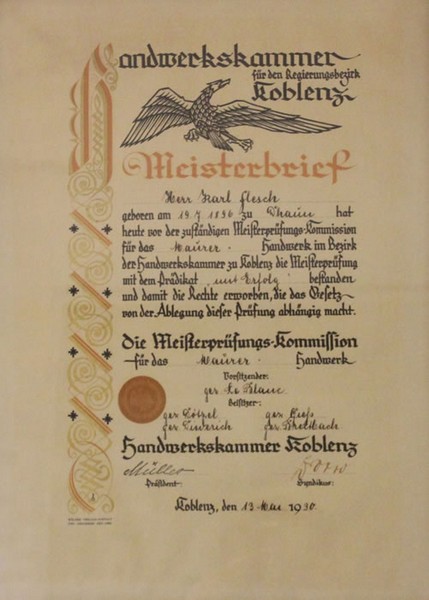 Handwerkskammer
für den Regierungsbezirk
Koblenz
Meisterbrief
Herr Karl Flesch
geboren am 19.7.1896 zu Thaur hat
heute vor der zuständigen Meisterprüfungs-Kommission
für das Maurer- Handwerk im Bezirk
der Handwerkskammer zu Koblenz die Meisterprüfung
mit dem Prädikat mit Erfolg bestanden
und damit die Rechte erworben, die das Gesetz
von der Ablegung dieser Prüfung abhängig macht.
Die Meisterprüfungs-Kommission
für das Maurer- Handwerk
Vorsitzender:
gez. Le Blanc
Beisitzer:
gez. gez.
gez. gez.
Handwerkskammer Koblenz
Müller
Präsident: Syndikus:
Koblenz, den 13. Mai 1930